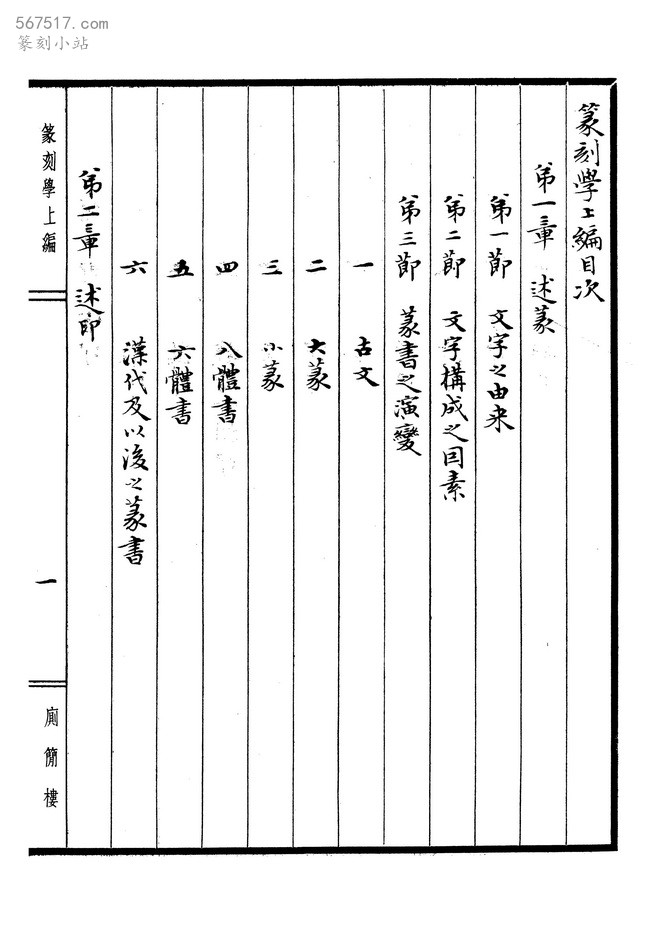 567517.com
篆刻小站
篆刻學上編目次
第一章 述篆
第一節 文字之由来
第二節 文字構成之因素
第三節 篆書之演變
一 古文
二 大篆
三 小篆
四 八體書
五 六體書
六 漢代及以後之篆書
第二章 述印
篆刻學上編
一
廁簡樓